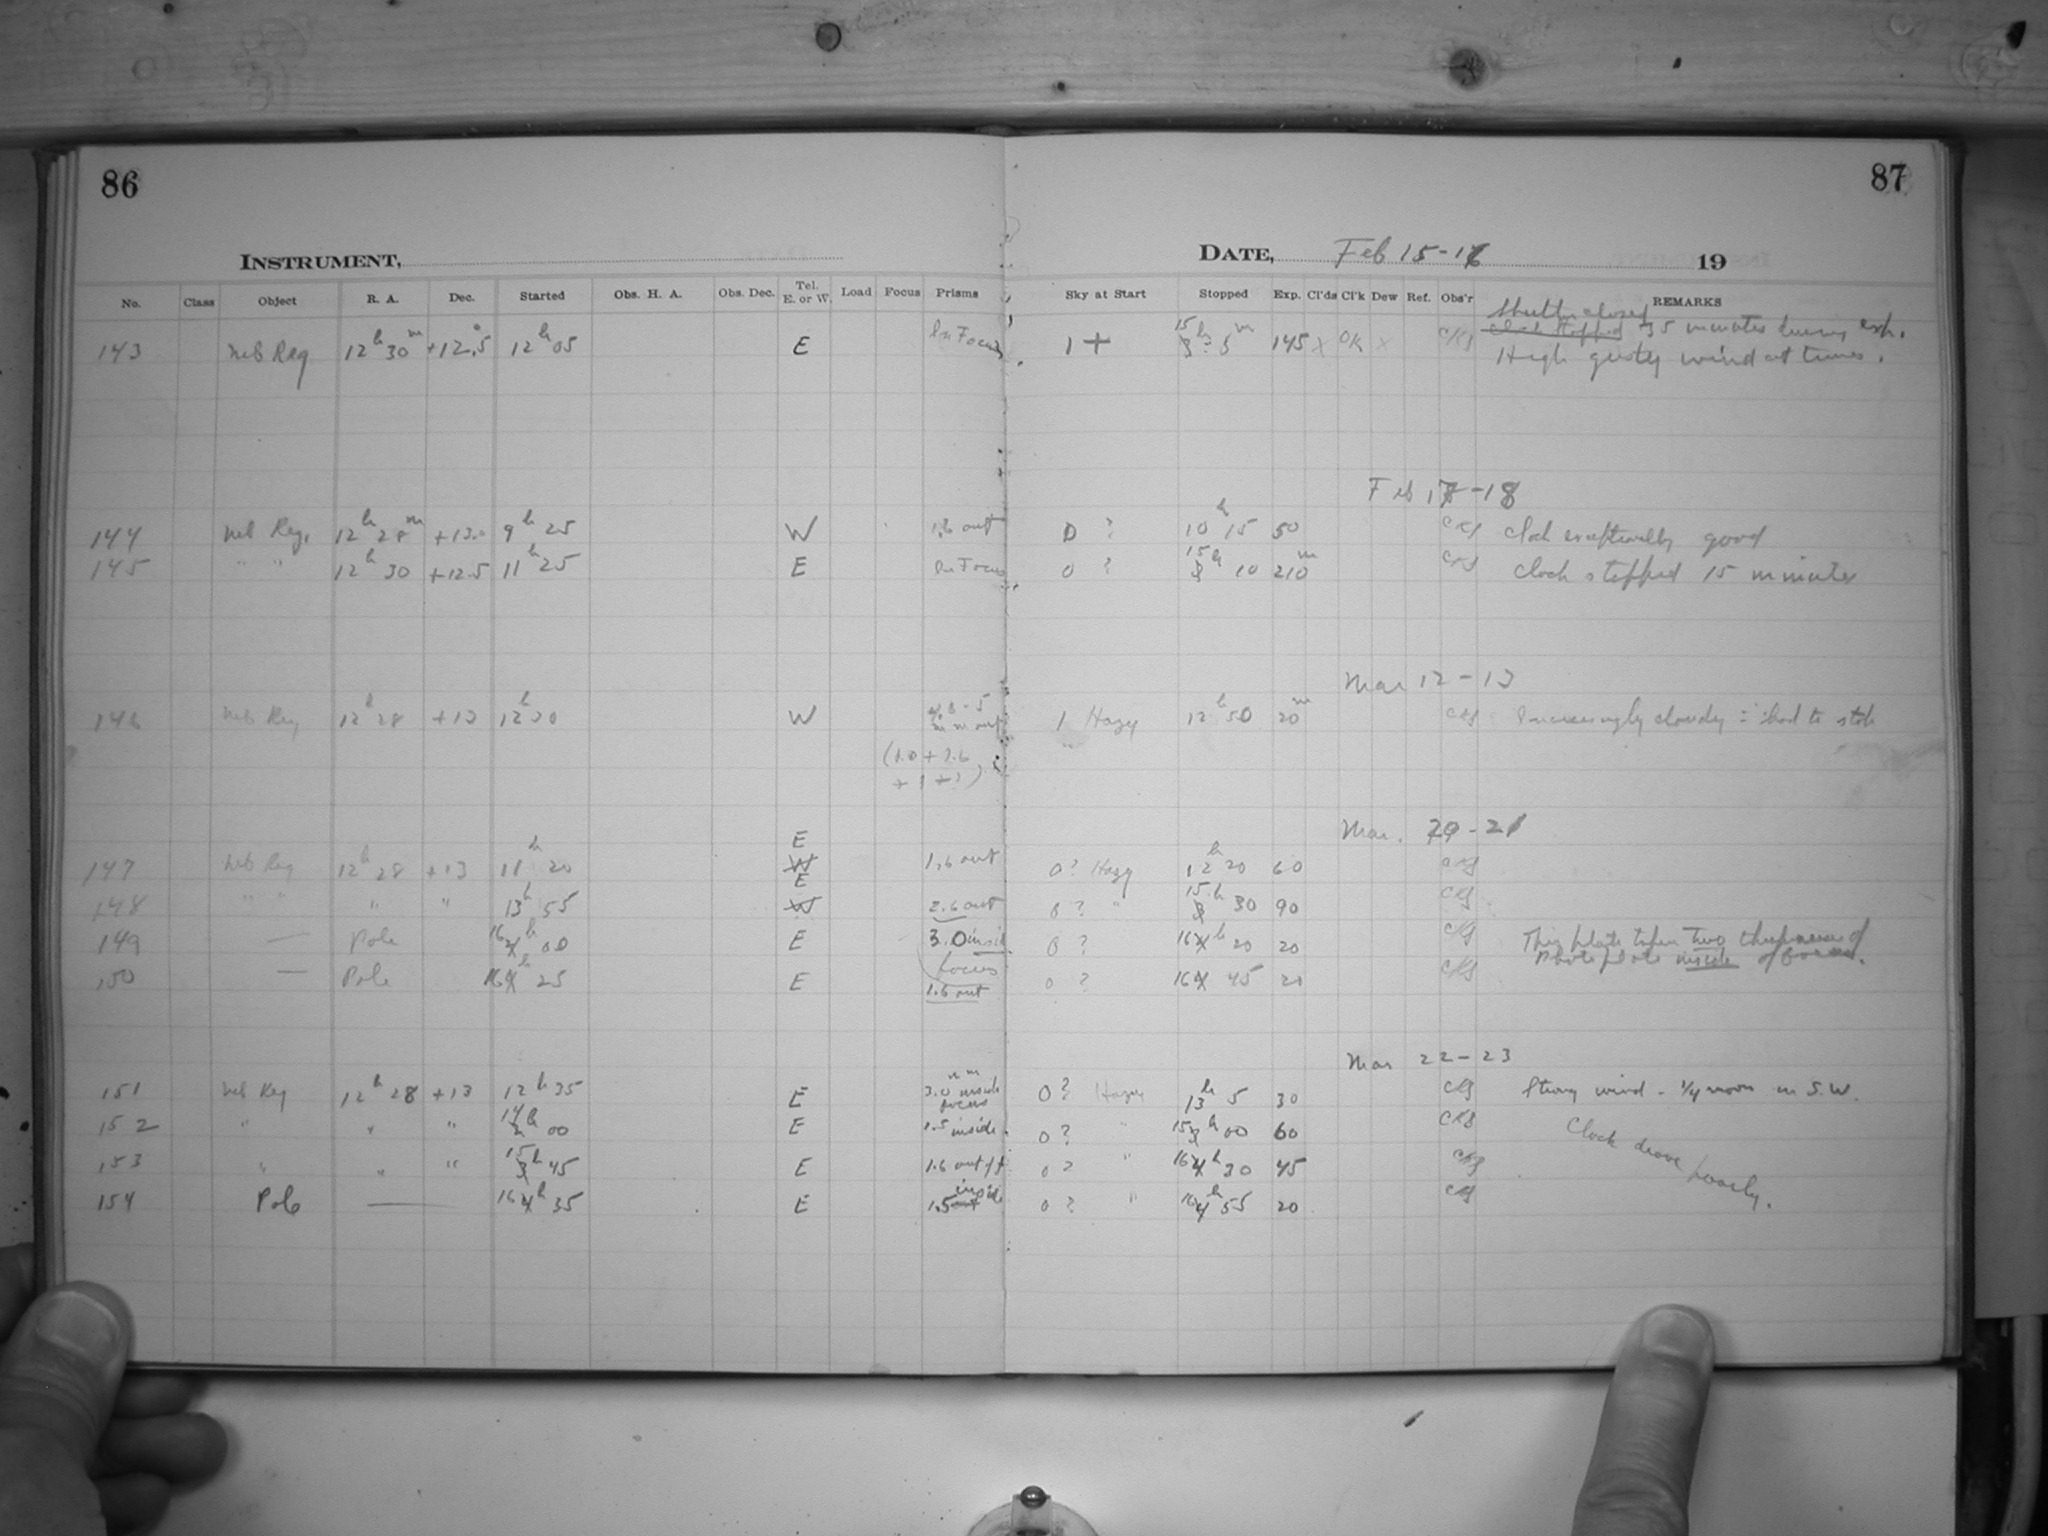 86
87
INSTRUMENT,
DATE, Feb 15-16 19
No. Class Object R. A. Dec. Started Obs. H. A. Obs. Dec. Tel. E. or W. Load Focus Prisms Sky at Start Stopped Exp. Cl'ds Cl'k Dew Ref. Obs'r REMARKS
Shutter closed
143 Neb Reg 12h 30m +12.5 12h 05 E In Focus 1+ 15h 5m 145 X OK X CKS 35 minutes during exp.
High gusty wind at times.
Feb 17-18
144 Neb Reg. 12h 28m +13.0 9h 25 W 1.6 out 0 ? 10h 15 50 CKS Clock exceptionally good
145 " " 12h 30 +12.5 11h 25 E In Focus 0 ? 15h 10 210m CKS Clock stopped 15 minutes
Mar 12-13
146 Neb Reg 12h 28 +13 12h 30 W mm out 1 Hazy 12h 50 20m CKS Increasingly cloudy = had to stop
Mar. 20-21
E
147 Neb Reg 12h 28 +13 11h 20 W 1.6 out 0? Hazy 12h 20 60 CKS
E
148 " " " " 13h 55 W 2.6 out 0? " 15h 30 90 CKS
149 — Pole 16h 00 E 3.0 inside 0? 16h 20 20 CKS This plate taken two thicknesses of
focus photo plate inside of focus.
150 — Pole 16h 25 E 1.6 out 0? 16 45 20 CKS
Mar 22-23
151 Neb Reg 12h 28 +13 12h 35 E 3.0 mm inside focus 0? Hazy 13h 5 30 CKS Strong wind - 1/4 moon in S.W.
152 " " " 14h 00 E 1.5 inside 0? " 15h 00 60 CKS Clock drove poorly.
153 " " " 15h 45 E 1.6 out 0? " 16h 30 45 CKS
154 Pole — 16h 35 E 1.5 inside 0? " 16h 55 20 CKS